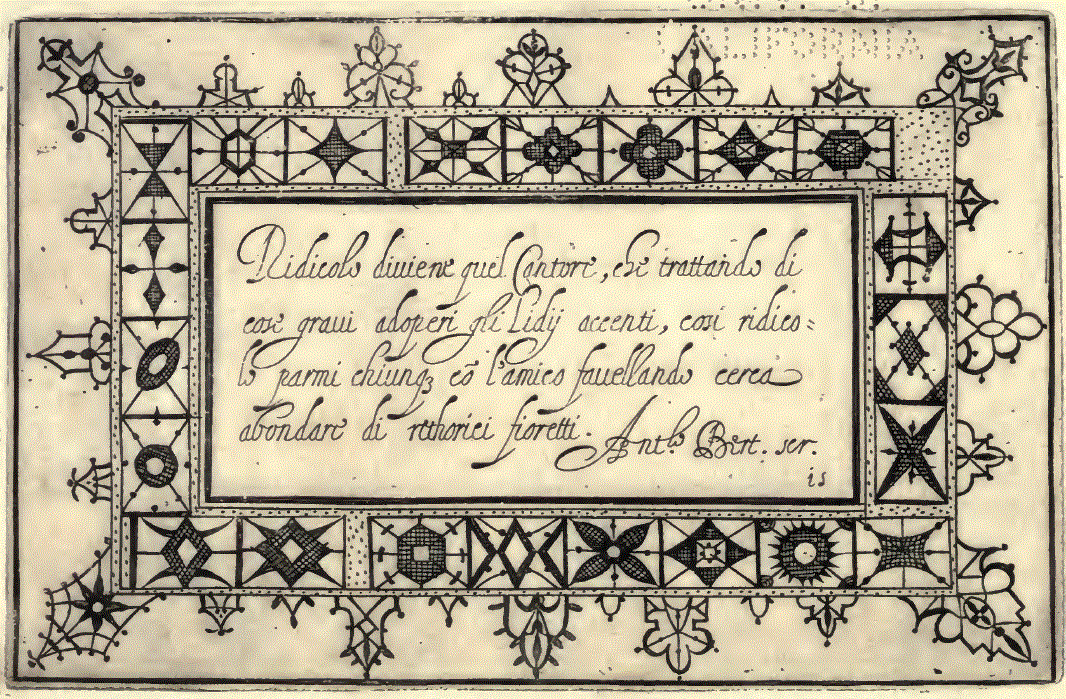 CALIFORNIA
Ridicolo diuiene quel Cantore, che trattando di
cose graui adoperi gli Lidij accenti, cosi ridico=
lo parmi chiunqȝ cō l'amico fauellando cerca
abondare di rethorici fioretti.
Ant.o Bert. scr.
15